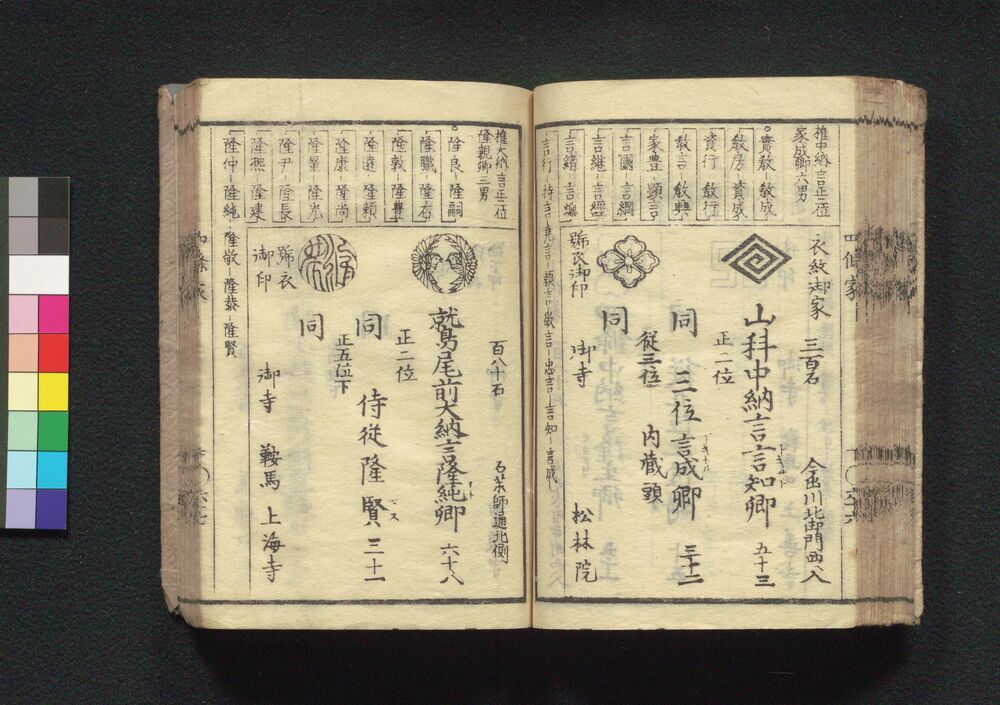 権中納言正二位
家成卿六男
實教－教成
教房－資成
資行－教行
教言－教興
家豊－顕言
言國－言綱
言継－言經
言緒－言總
言行－持言－尭言－頼言－敬言－忠言－言知－言成
衣紋御家
三百石
今出川北御門西入
山科中納言言知卿
五十三
正二位
同
三位言成卿
三十二
従三位
内蔵頭
同
御寺
松林院
號衣御印
四條家
権大納言正二位
隆親卿三男
隆良－隆嗣
隆職－隆右
隆敦－隆豊
隆遠－隆頼
隆康－隆尚
隆量－隆光
隆尹－隆長
隆熈－隆建
隆仲－隆純
隆敬－隆恭－隆賢
百八十石
石薬師通北側
鷲尾前大納言隆純卿
六十八
正二位
同
侍従隆賢
三十一
正五位下
同
號衣
御印
御寺
鞍馬
上海寺
四條家